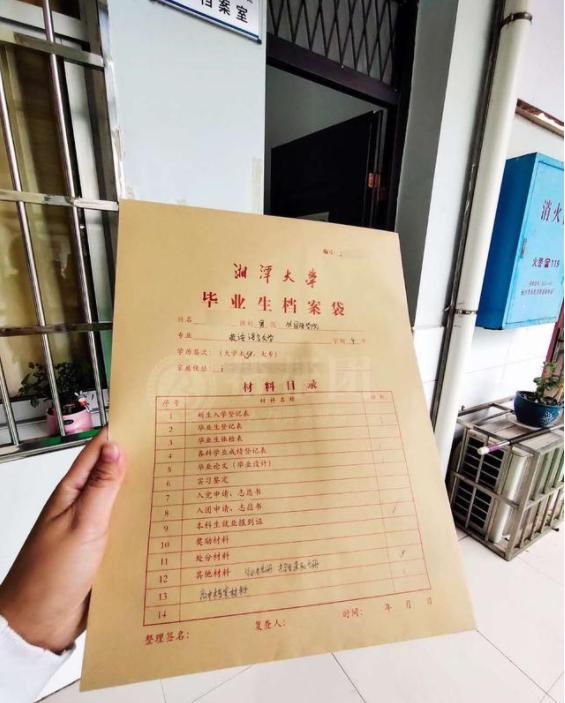 档案室
消火
火警☎119
编号：
湘潭大学
毕业生档案袋
姓名 性别 男 院 外国语学院
专业 英语语言文学 学制 年
学历层次：（大学本科、大专）
家庭住址：
材料目录
序号 材料名称
1 新生入学登记表
2 毕业生登记表
3 毕业生体检表
4 各科学业成绩登记表
5 毕业论文（毕业设计）
6 实习鉴定
7 入党申请、志愿书
8 入团申请、志愿书
9 本科生就业报到证
10 奖励材料
11 处分材料
12 其他材料
13 高中档案材料
14
整理签名： 复查人： 时间： 年 月 日